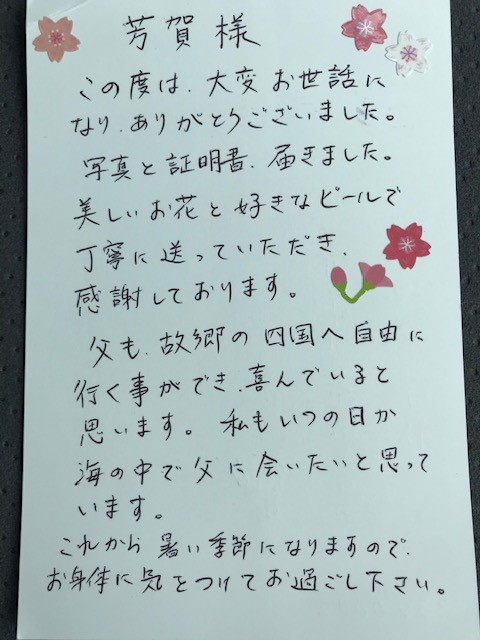 芳賀様
この度は、大変お世話に
なり、ありがとうございました。
写真と証明書、届きました。
美しいお花と好きなビールで
丁寧に送っていただき、
感謝しております。
父も、故郷の四国へ自由に
行く事ができ、喜んでいると
思います。私もいつの日か
海の中で父に会いたいと思って
います。
これから暑い季節になりますので、
お身体に気をつけてお過ごし下さい。